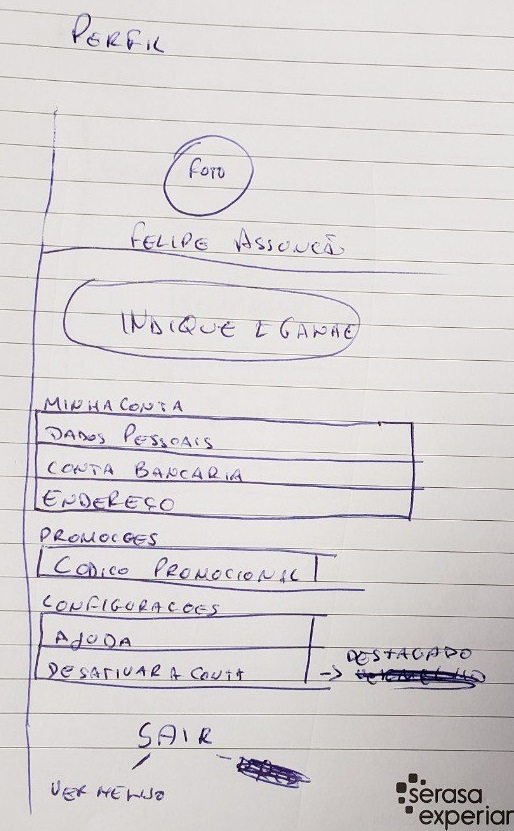 PERFIL
FOTO
FELIPE ASSUNCÃO
INDIQUE E GANHE
MINHA CONTA
DADOS PESSOAIS
CONTA BANCARIA
ENDEREÇO
PROMOCOES
CODIGO PROMOCIONAL
CONFIGURACOES
AJUDA
DESATIVAR A CONTA → DESTACADO
SAIR
VERMELHO
serasa
experian